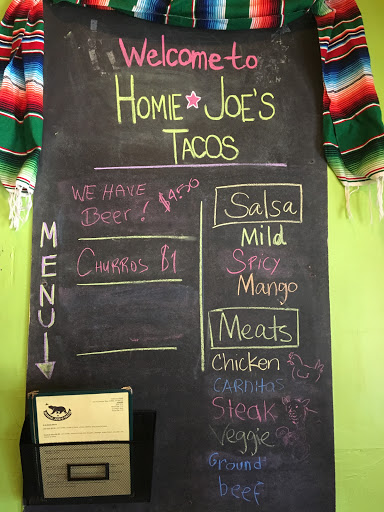 Welcome to
HOMIE JOE'S
TACOS
WE HAVE
Beer! $4.50
CHURROS $1
MENU
Salsa
Mild
Spicy
Mango
Meats
Chicken
CARNITAS
Steak
Veggie
Ground
beef